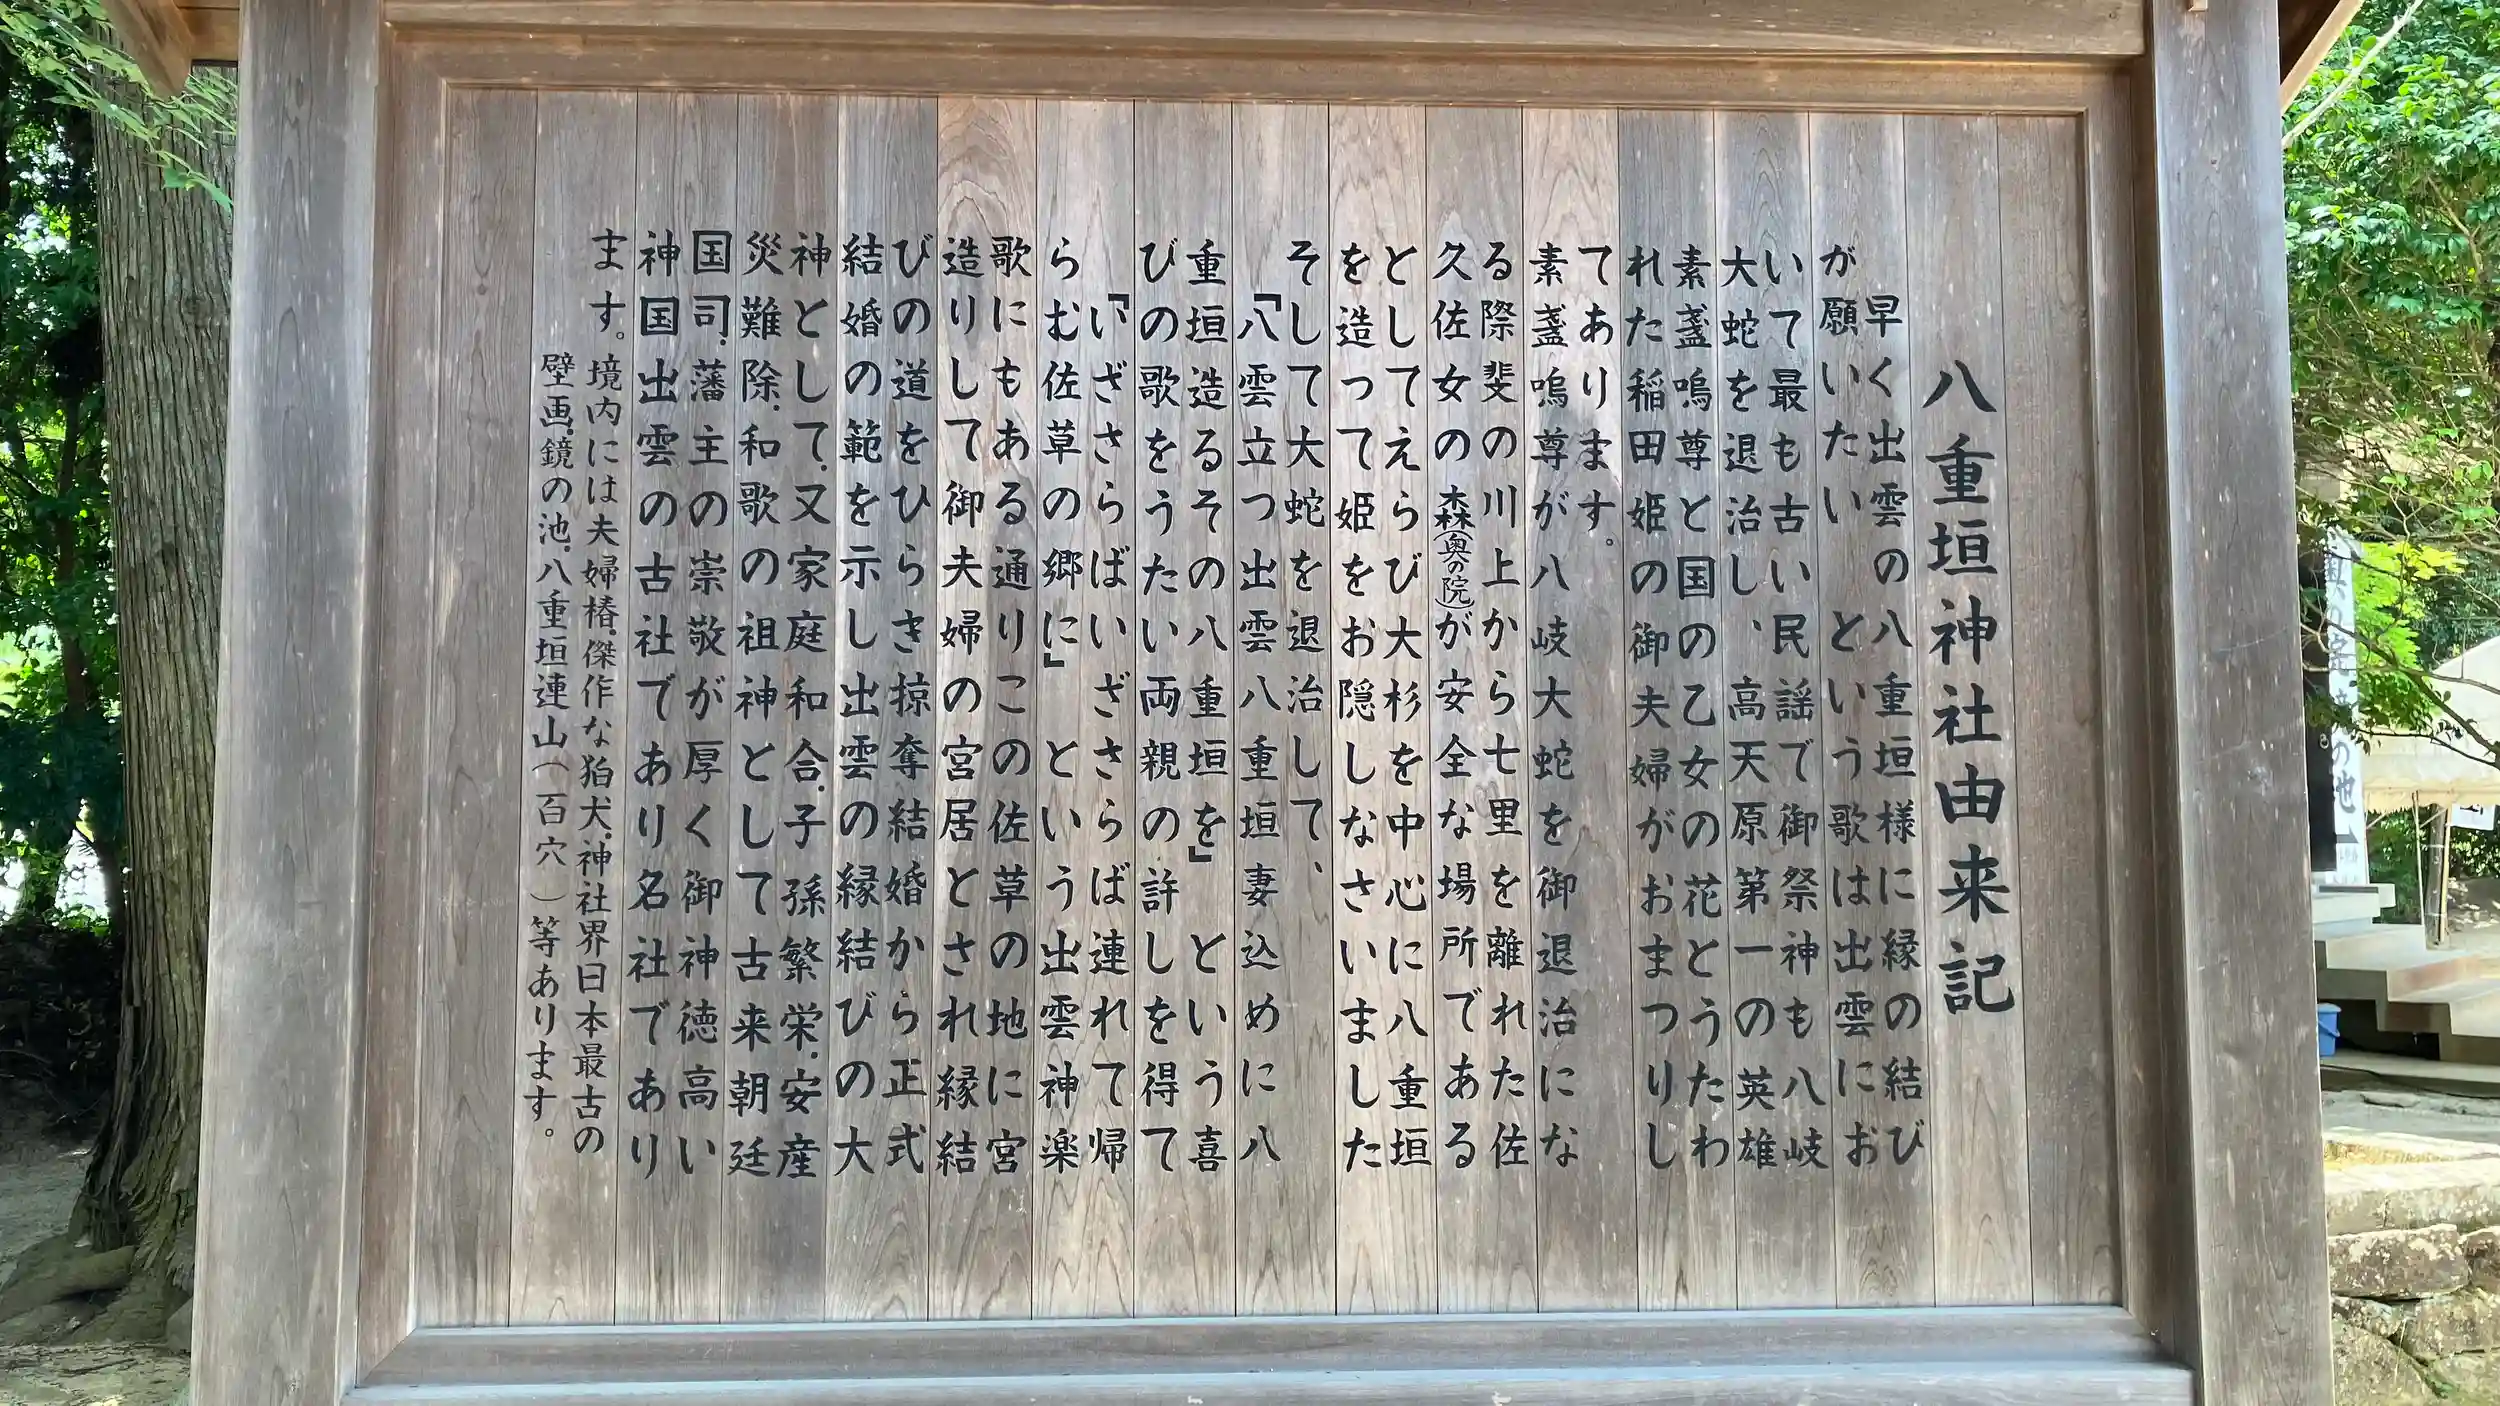 八重垣神社由来記
早く出雲の八重垣様に縁の結び
が願いたい　という歌は出雲にお
いて最も古い民謡で御祭神も八岐
大蛇を退治し、高天原第一の英雄
素盞嗚尊と国の乙女の花とうたわ
れた稲田姫の御夫婦がおまつりし
てあります。
素盞嗚尊が八岐大蛇を御退治にな
る際斐の川川上から七里を離れた佐
久佐女の森(奥の院)が安全な場所である
としてえらび大杉を中心に八重垣
を造って姫をお隠しなさいました
そして大蛇を退治して、
「八雲立つ出雲八重垣妻込めに八
重垣造るその八重垣を」という喜
びの歌をうたい両親の許しを得て
「いざさらばいざさらば連れて帰
らむ佐草の郷に」という出雲神楽
歌にもある通りこの佐草の地に宮
造りして御夫婦の宮居とされ縁結
びの道をひらき掠奪結婚から正式
結婚の範を示し出雲の縁結びの大
神として、又家庭和合、子孫繁栄、安産
災難除、和歌の祖神として古来朝廷
国司、藩主の崇敬が厚く御神徳高い
神国出雲の古社であり名社であり
ます。境内には夫婦椿、傑作な狛犬、神社界日本最古の
壁画、鏡の池、八重垣連山(百穴)等あります。